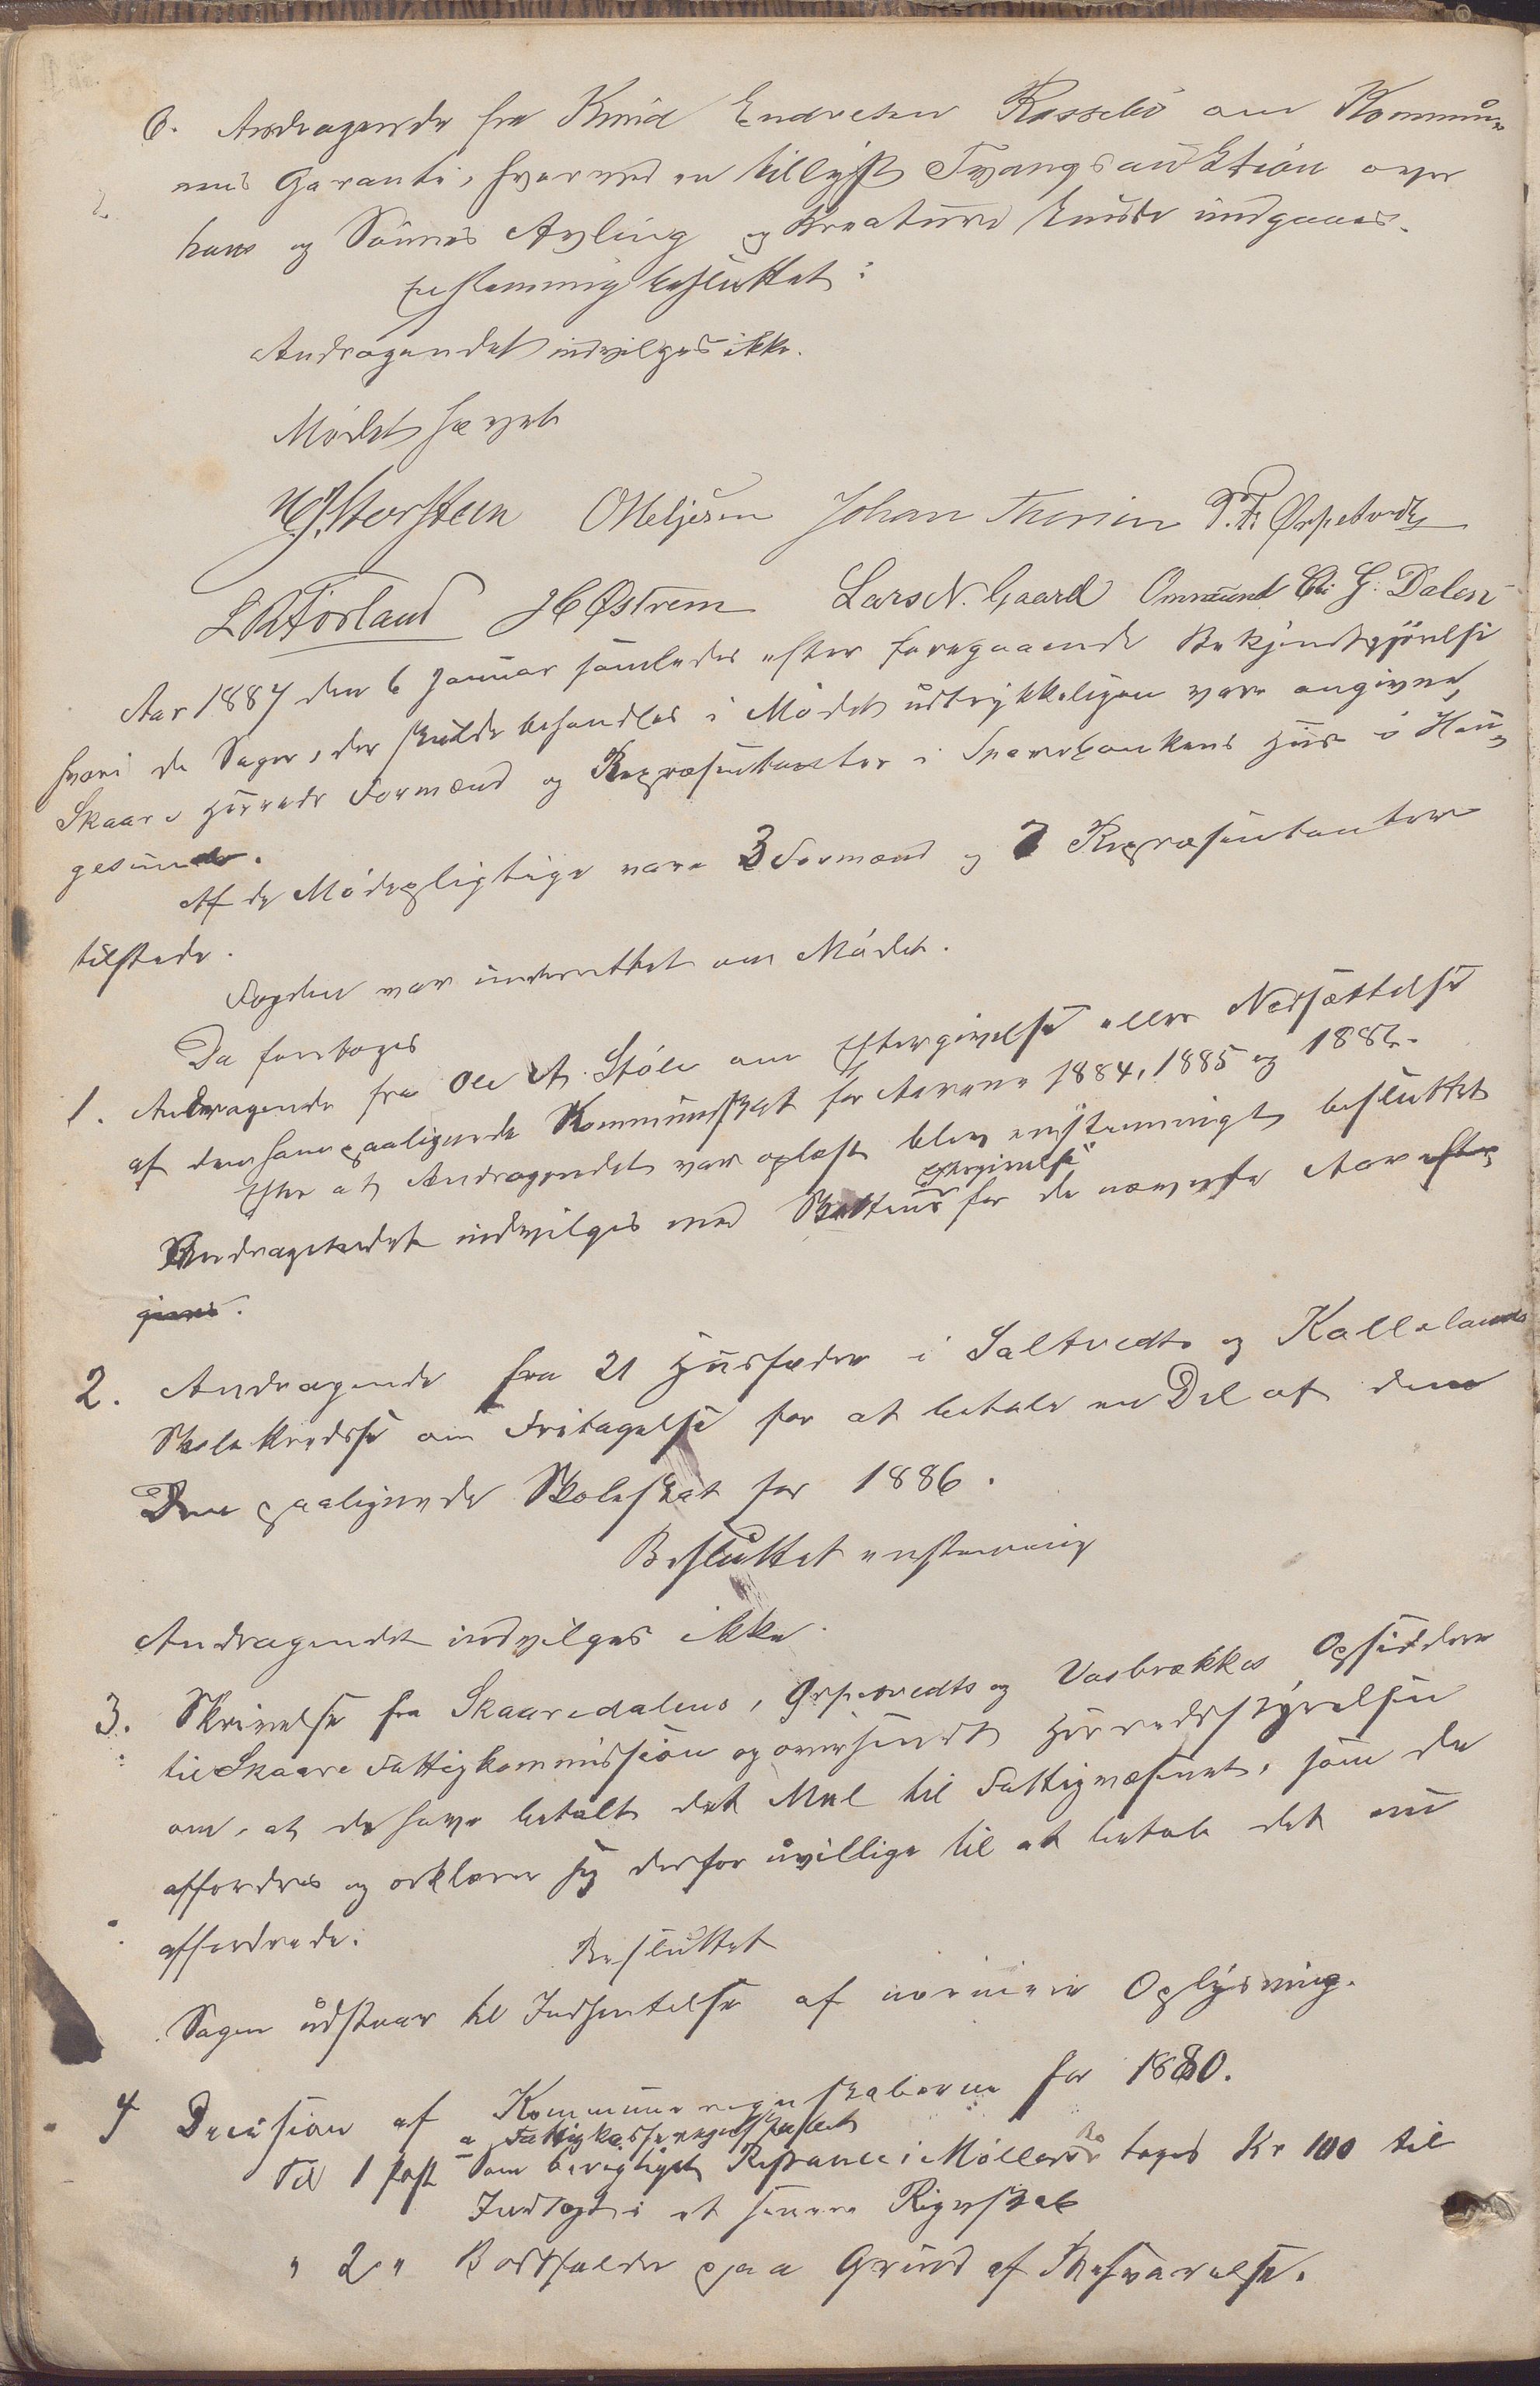 6. Andragende fra Knud Endresen Rossebö om Kommu-
nens Garanti, hvorved en tillyst Tvangsauktion over
hans og Sönnes Avling og Kreature kunde undgaaes.
Enstemmig besluttet:
Andragendet indvilges ikke.
Mödet hævet
Storsteen O Meljesen Johan Thorsen T. T. Ørpetvedt
L R Förland H Østrem Lars N. Gaard Ommund G. Dalen
Aar 1887 den 6 Januar samledes efter foregaaende Bekjendtgjörelse
hvori de Sager, der skulde behandles i Mödet udtrykkeligen vare angivne,
Skaare Herreds Formænd og Repræsentanter i Sparebankens Hus i Hau-
gesund.
Af de Mödepligtige vare 3 Formænd og 7 Repræsentanter
tilstede.
Fogden var underrettet om Mödet.
Da foretoges
1. Andragende fra Ole A. Stöle om Eftergivelse eller Nedsættelse
af den ham paalignede Kommuneskat for Aarene 1884, 1885 og 1886.
Efter at Andragendet var oplæst blev enstemmigt besluttet
eftergivelse
Andragendet indvilges med Skattens for de nævnte Aar efter-
gives.
2. Andragende fra 21 Husfædre i Saltvedts og Kallelands
Skolekredse om Fritagelse for at betale en Del af den
Dem paalignede Skoleskat for 1886.
Besluttet enstemmig
Andragendet indvilges ikke.
3. Skrivelse fra Skaaredalens, Ørpetvedts og Vasbrækkes Opsiddere
til Skaare Fattigkommission og oversendt Herredsstyrelsen
om, at de have betalt det Mel til Fattigvæsenet, som de
affordres og erklærer sig derfor uvillige til at betale det nu
affordrede.
Besluttet
Sagen udstaar til Indhentelse af nærmere Oplysning.
4 Decision af Kommuneregnskaberne for 1880.
a Fattigkasseregnskabet
Til 1 Post Som berigtiget Restance i Möllers Bo toges Kr 100 til
Indtægt i et senere Regnskab
" 2 " Bortfalder paa Grund af Besvarelse.